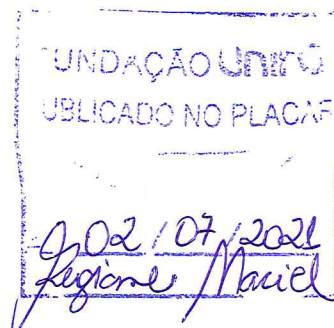 UNDAÇÃO UnirG
UBLICADO NO PLACAR
02/07/2021
Regiane Maciel